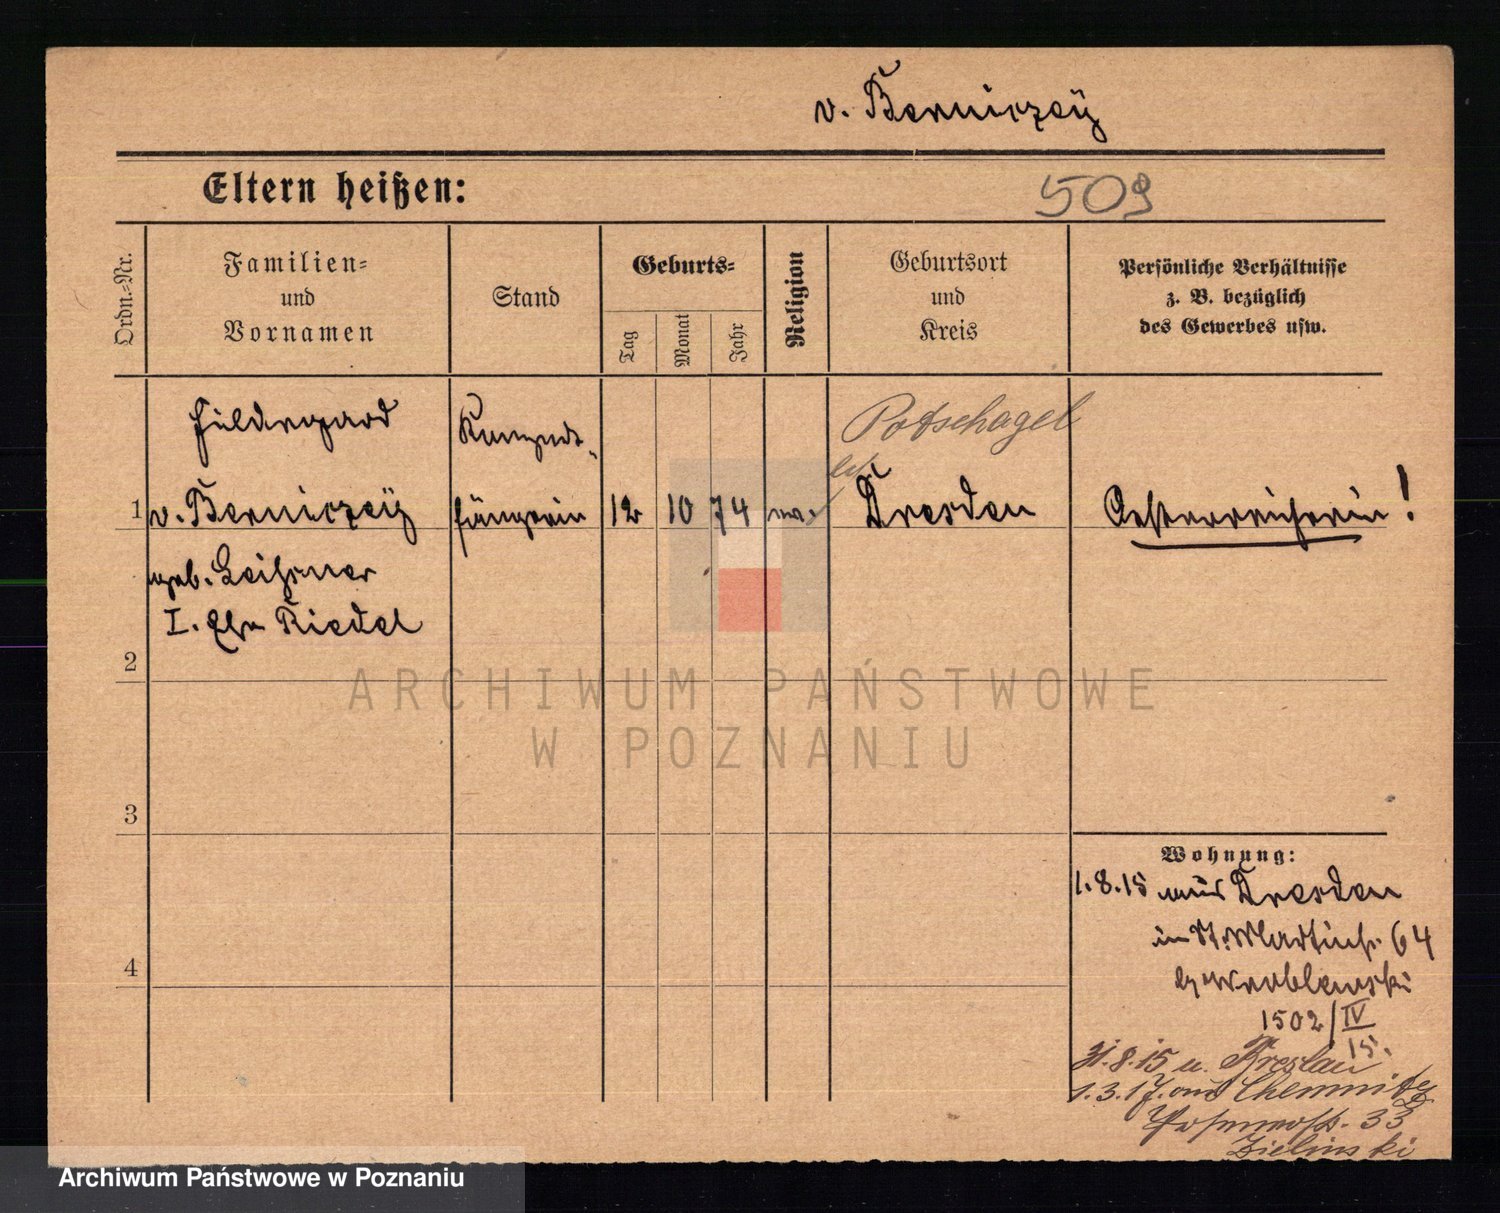 v. Berniczeÿ
Eltern heißen:
509
Ordn.-Nr.
Familien-
und
Vornamen
Stand
Geburts-
Tag
Monat
Jahr
Religion
Geburtsort
und
Kreis
Persönliche Verhältnisse
z. B. bezüglich
des Gewerbes usw.
Hildegard
Konzert-
Potschagel
1
v. Berniczeÿ
sängerin
12
10
74
Dresden
Oesterreicherin!
geb. Leißner
I. Ehe Riedel
2
ARCHIWUM PAŃSTWOWE
W POZNANIU
3
Wohnung:
1.8.15 aus Dresden
in St. Martinstr. 64
b/ Wroblewski
4
1502/IV
15.
31.8.15 n. Breslau
1.3.17. aus Chemnitz
33
Zielinski
Archiwum Państwowe w Poznaniu